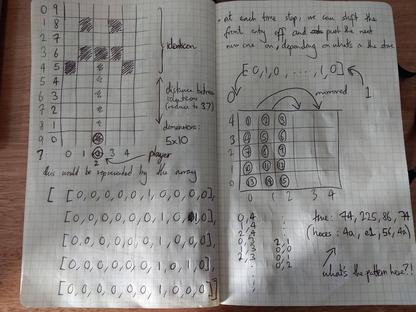 0 9
1 8
2 7
3 6
4 5
5 4
6 3
7 2
8 1
9 0
identicon
distance between
identicons
(reduce to 3?)
dimensions:
5x10
0 1 2 3 4
player
this would be represented by the array
[ [0,0,0,0,0,1,0,0,0,0],
[0,0,0,0,0,0,1,0,1,0],
[0,0,0,0,0,0,1,0,0,0],
[0,0,0,0,0,0,1,0,1,0],
[0,0,0,0,0,1,0,0,0,0] ]
• at each time step, we can shift the
front entry off and push the next
one on, depending on what's in the store
[0,1,0, ...., 1,0]
0
1
mirrored
4 1 2 3
3 4 5 6
2 7 8 9
1 10 11 12
0 13 14 15
0 1 2 3 4
0,4
1,4
2,4
0,3
1,3
2,3
2,1
0,0
1,0
0,2
true: 74, 225, 86, 74
(hexes: 4a, e1, 56, 4a)
what's the pattern here?!